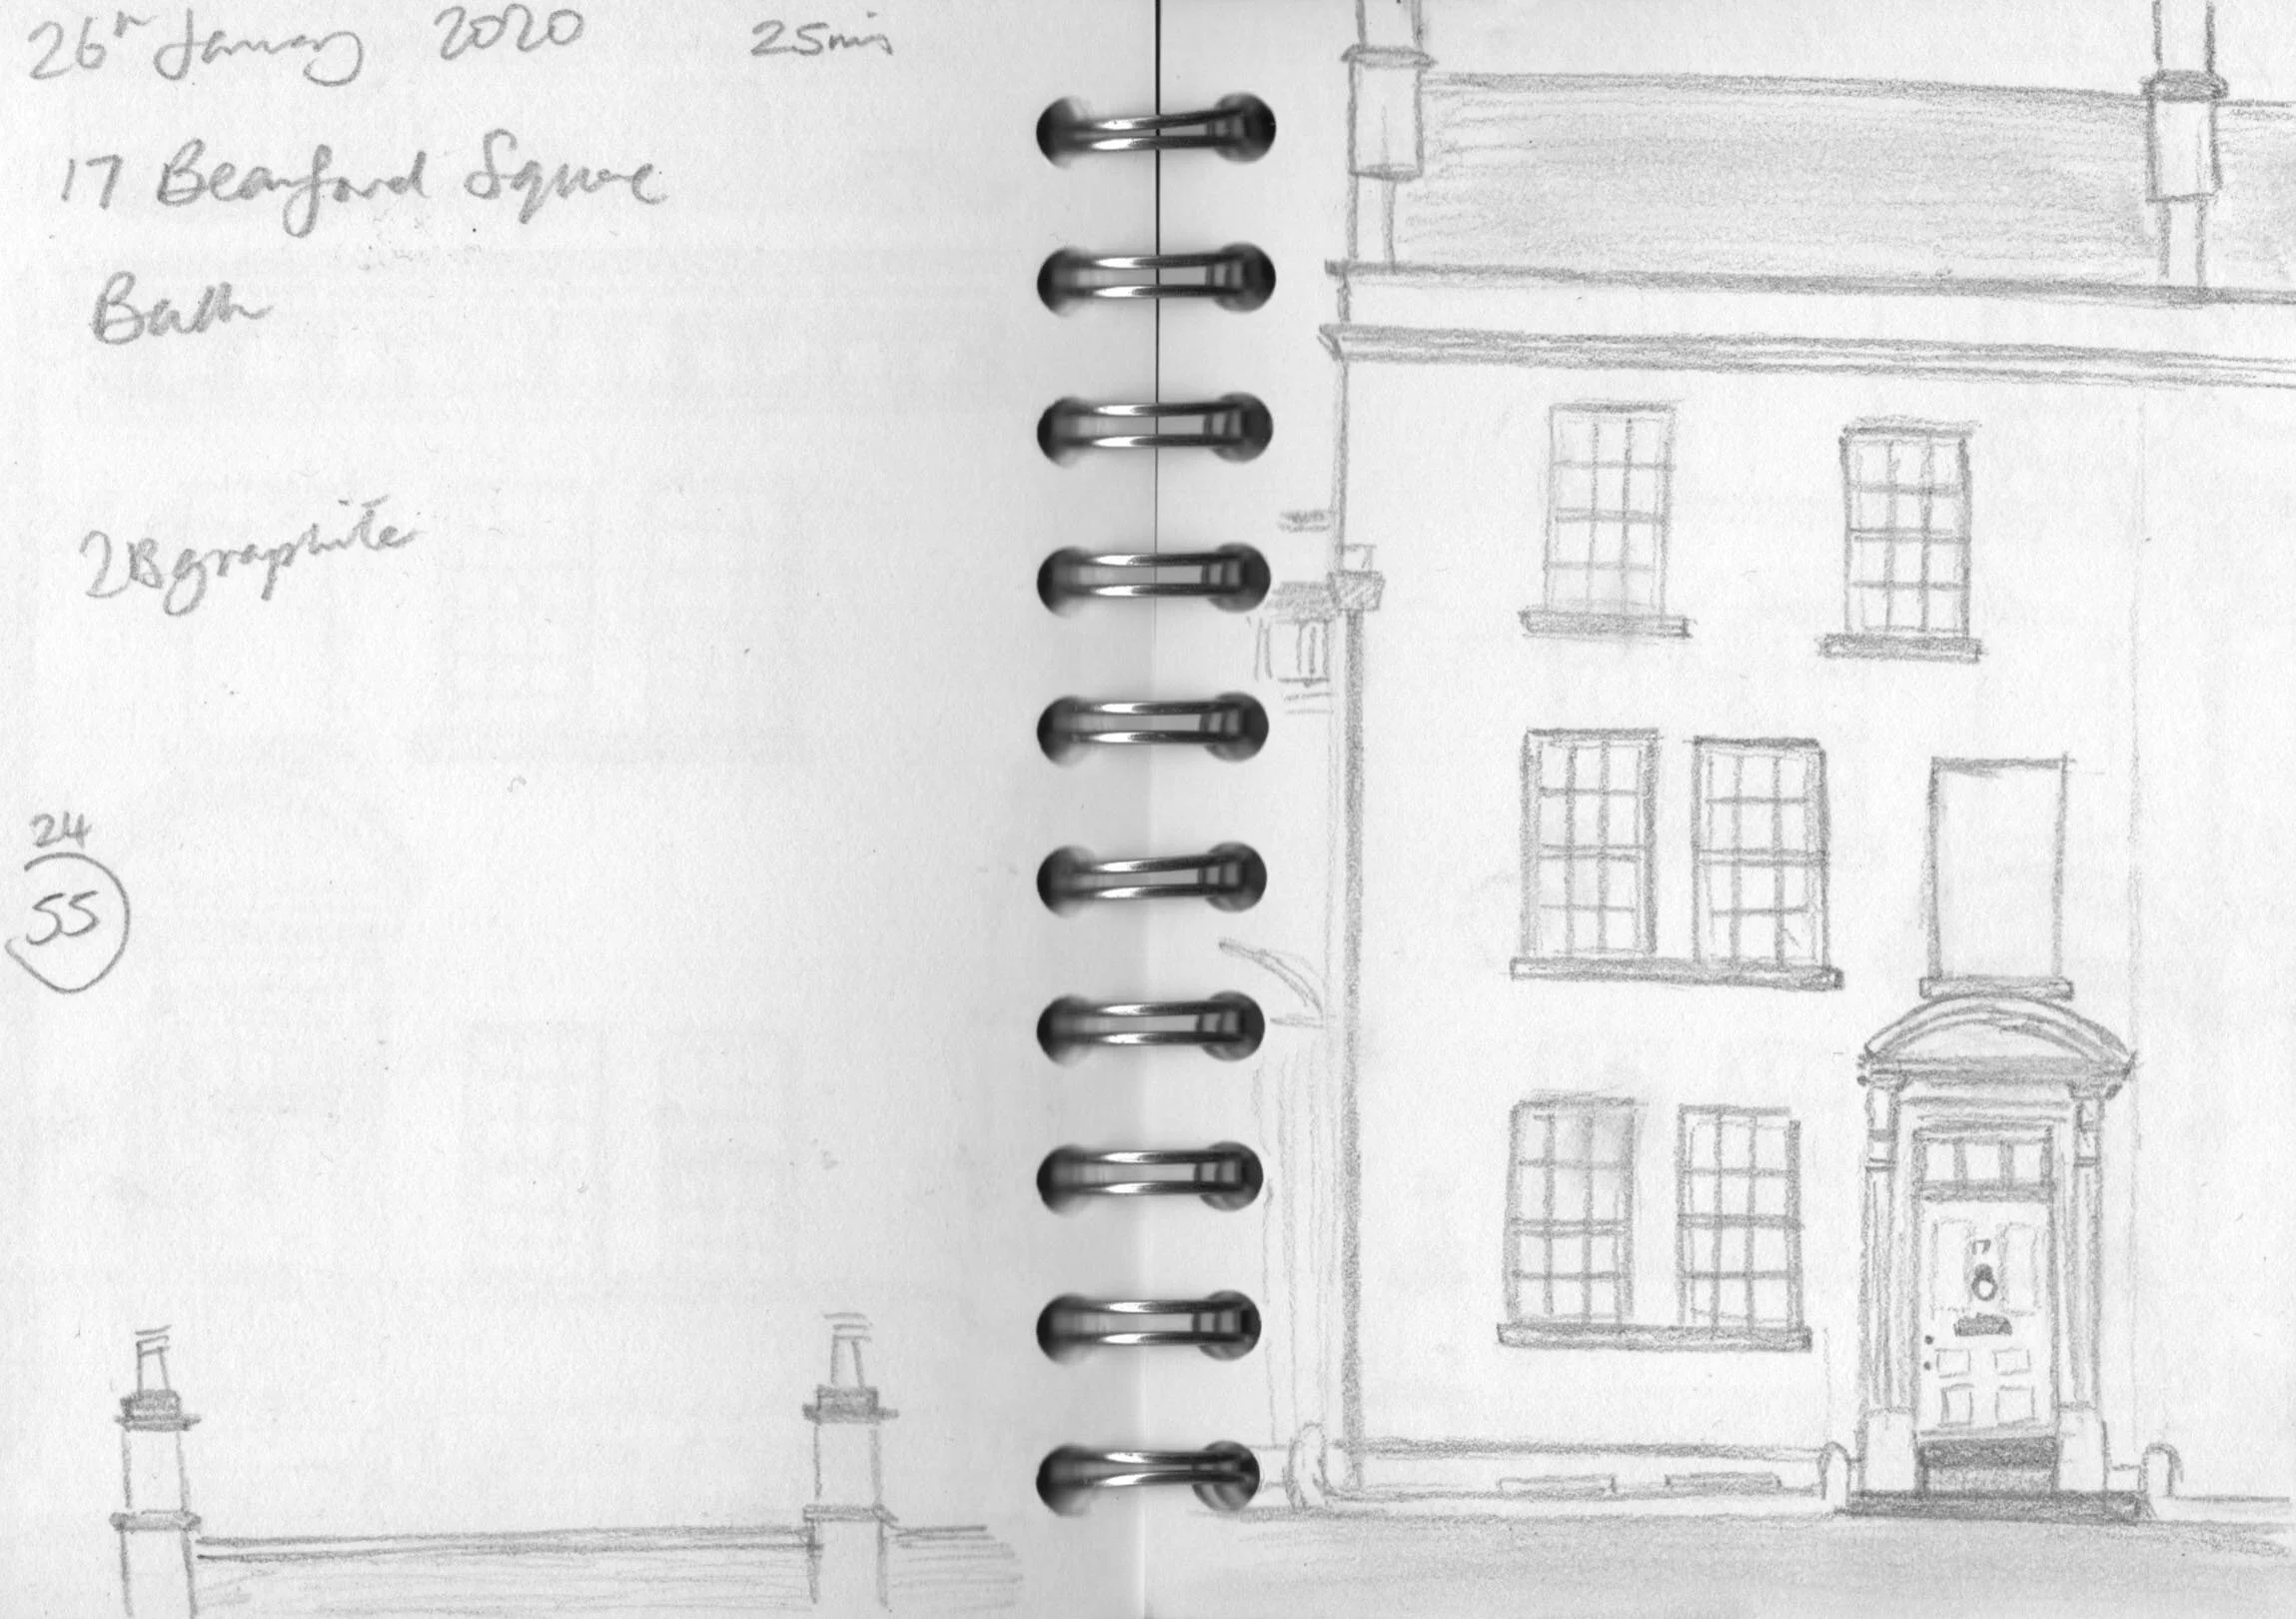 26th January 2020 25mins
17 Beauford Square
Bath
2B graphite
24
55